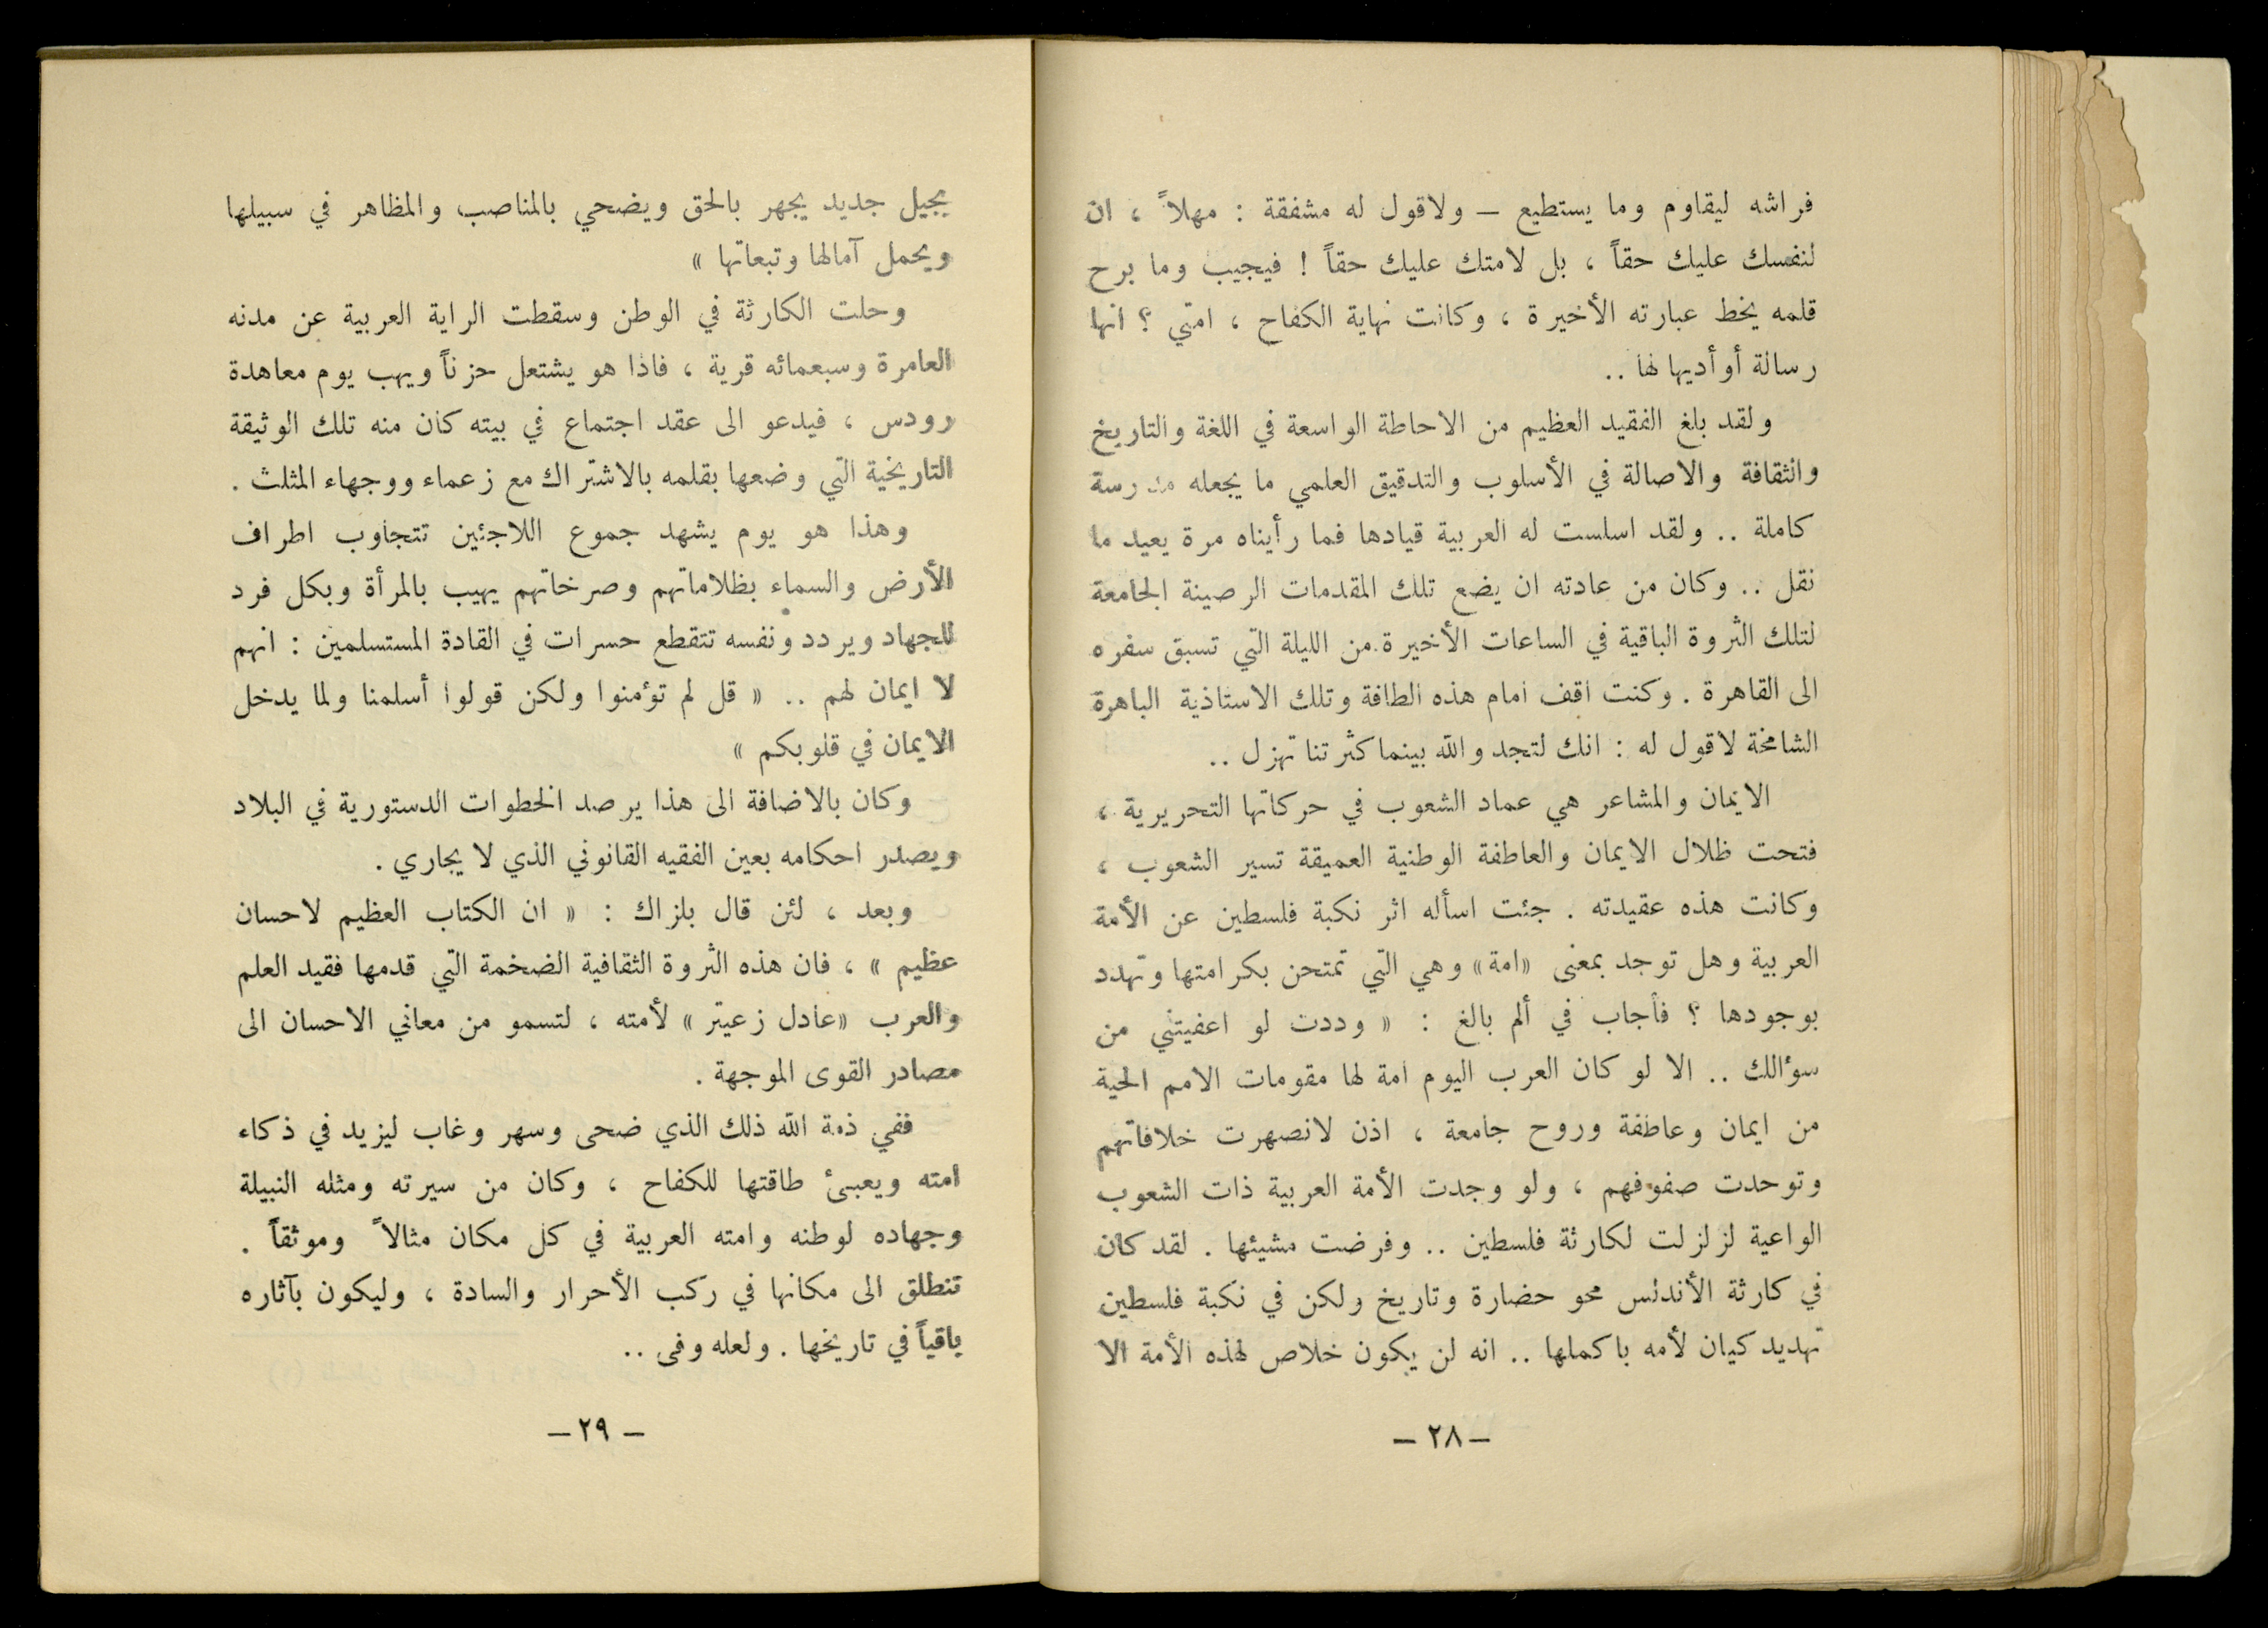 فراشه ليقاوم وما يستطيع — ولاقول له مشفقة : مهلاً ، ان
لنفسك عليك حقاً ، بل لامتك عليك حقاً ! فيجيب وما برح
قلمه يخط عبارته الأخيرة ، وكانت نهاية الكفاح ، امتي ؟ انها
رسالة أو أديها لها ..
ولقد بلغ الفقيد العظيم من الاحاطة الواسعة في اللغة والتاريخ
والثقافة والاصالة في الأسلوب والتدقيق العلمي ما يجعله مدرسة
كاملة .. ولقد اسلست له العربية قيادها فما رأيناه مرة يعيد ما
نقل .. وكان من عادته ان يضع تلك المقدمات الرصينة الجامعة
لتلك الثروة الباقية في الساعات الأخيرة من الليلة التي تسبق سفره
الى القاهرة . وكنت اقف امام هذه الطاقة وتلك الاستاذية الباهرة
الشامخة لاقول له : انك لتجد والله بينما كثرتنا تهزل ..
الايمان والمشاعر هي عماد الشعوب في حركاتها التحريرية ،
فتحت ظلال الايمان والعاطفة الوطنية العميقة تسير الشعوب ،
وكانت هذه عقيدته . جئت اسأله اثر نكبة فلسطين عن الأمة
العربية وهل توجد بمعنى «امة» وهي التي تمتحن بكرامتها وتهدد
بوجودها ؟ فأجاب في ألم بالغ : « وددت لو اعفيتني من
سؤالك .. الا لو كان العرب اليوم امة لها مقومات الامم الحية
من ايمان وعاطفة وروح جامعة ، اذن لانصهرت خلافاتهم
وتوحدت صفوفهم ، ولو وجدت الأمة العربية ذات الشعوب
الواعية لزلزلت لكارثة فلسطين .. وفرضت مشيئها . لقد كان
في كارثة الأندلس محو حضارة وتاريخ ولكن في نكبة فلسطين
تهديد كيان لأمه باكملها .. انه لن يكون خلاص لهذه الأمة الا
— ٢٨ —
بجيل جديد يجهر بالحق ويضحي بالمناصب والمظاهر في سبيلها
ويحمل آمالها وتبعاتها »
وحلت الكارثة في الوطن وسقطت الراية العربية عن مدنه
العامرة وسبعمائه قرية ، فاذا هو يشتعل حزناً ويهب يوم معاهدة
رودس ، فيدعو الى عقد اجتماع في بيته كان منه تلك الوثيقة
التاريخية التي وضعها بقلمه بالاشتراك مع زعماء ووجهاء المثلث .
وهذا هو يوم يشهد جموع اللاجئين تتجاوب اطراف
الأرض والسماء بظلاماتهم وصرخاتهم يهيب بالمرأة وبكل فرد
للجهاد ويردد ونفسه تتقطع حسرات في القادة المستسلمين : انهم
لا ايمان لهم .. « قل لم تؤمنوا ولكن قولوا أسلمنا ولما يدخل
الايمان في قلوبكم »
وكان بالاضافة الى هذا يرصد الخطوات الدستورية في البلاد
ويصدر احكامه بعين الفقيه القانوني الذي لا يجاري .
وبعد ، لئن قال بلزاك : « ان الكتاب العظيم لاحسان
عظيم » ، فان هذه الثروة الثقافية الضخمة التي قدمها فقيد العلم
والعرب «عادل زعيتر » لأمته ، لتسمو من معاني الاحسان الى
مصادر القوى الموجهة .
ففي ذمة الله ذلك الذي ضحى وسهر وغاب ليزيد في ذكاء
امته ويعبئ طاقتها للكفاح ، وكان من سيرته ومثله النبيلة
وجهاده لوطنه وامته العربية في كل مكان مثالاً وموثقاً .
تنطلق الى مكانها في ركب الأحرار والسادة ، وليكون بآثاره
باقياً في تاريخها . ولعله وفى ..
— ٢٩ —